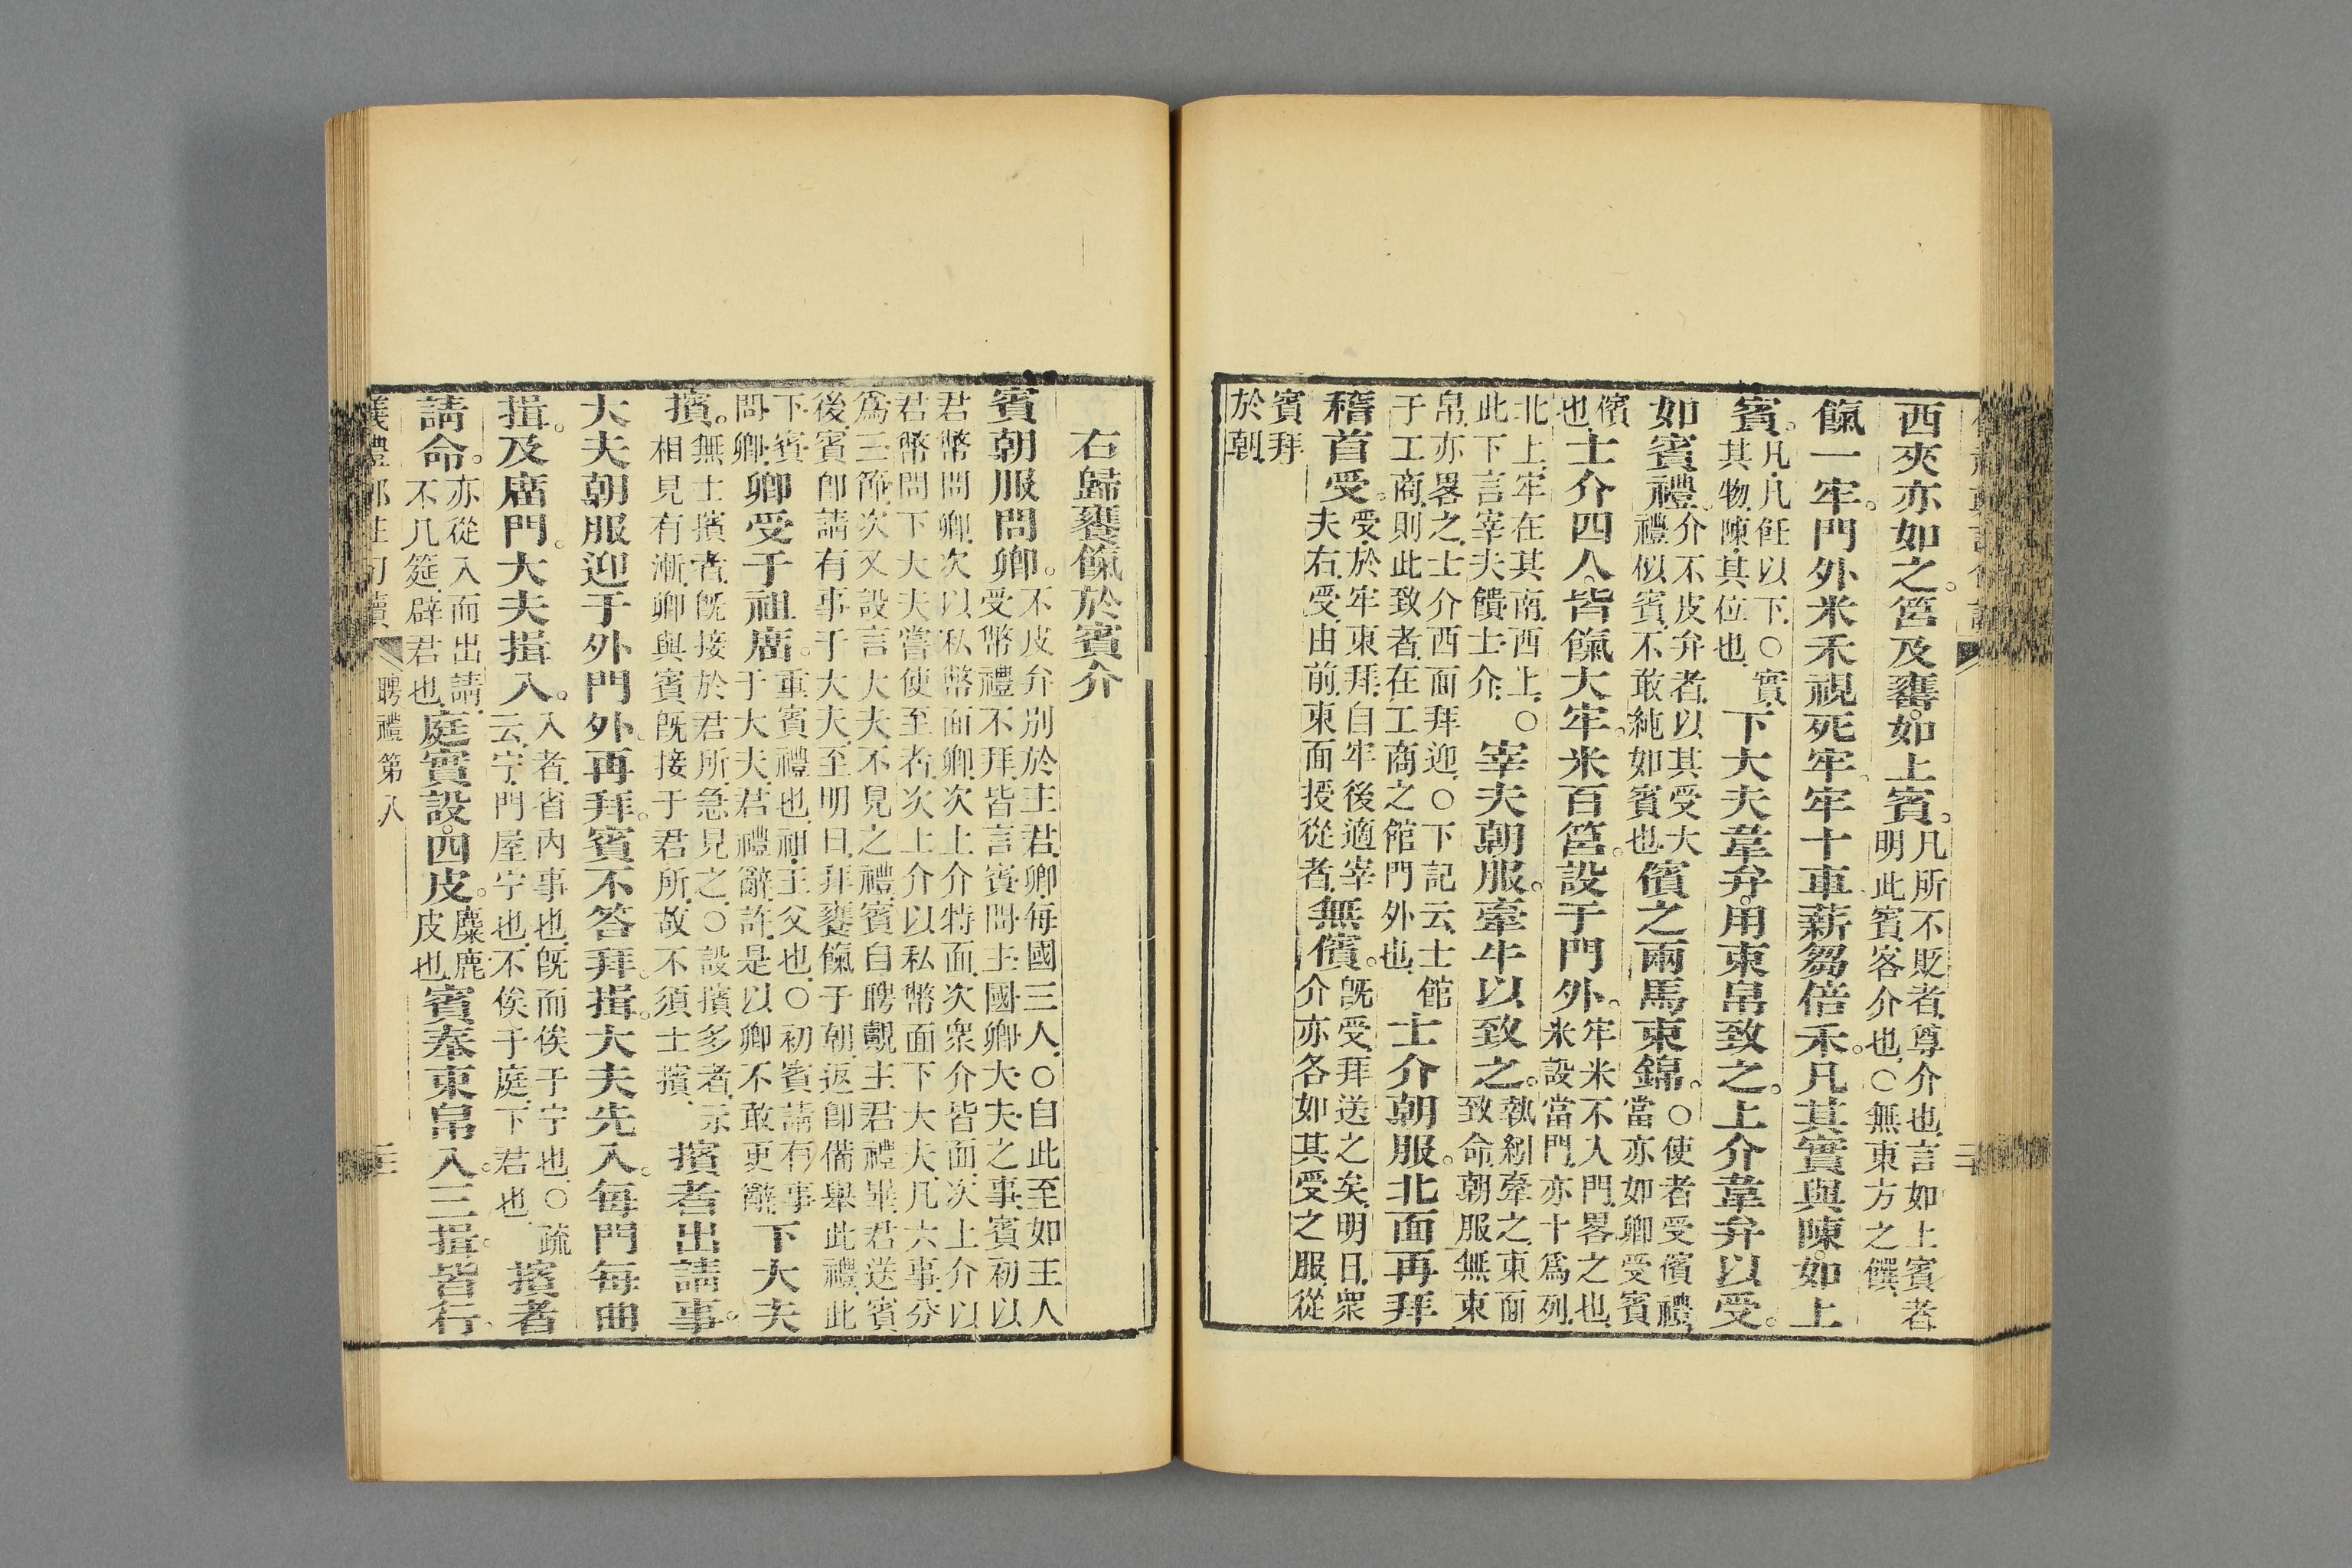 西夾亦如之。筥及罋。如上賓。凡所不貶者尊介也言如上賓者
明此賓客介也○無東方之饌
餼一牢。門外米禾視死牢。牢十車薪芻倍禾。凡其實與陳。如上
賓。凡凡飪以下○實
其物陳其位也
下大夫韋弁。用束帛致之。上介韋弁以受。
如賓禮。介不皮弁者以其受大
禮似賓不敢純如賓也
儐之兩馬束錦。○使者受儐禮
當亦如卿受賓
儐
也
士介四人。皆餼大牢。米百筥。設于門外。牢米不入門畧之也
米設當門亦十爲列
北上牢在其南西上○
此下言宰夫饋士介
宰夫朝服。牽牛以致之。執紖牽之東面
致命朝服無束
帛亦畧之士介西面拜迎○下記云士館
于工商則此致者在工商之館門外也
士介朝服。北面再拜
稽首受。受於牢東拜自牢後適宰
夫右受由前東面授從者
無儐。既受拜送之矣明日衆
介亦各如其受之服從
賓拜
於朝
右歸饔餼於賓介
賓朝服問卿。不皮弁別於主君卿每國三人○自此至如王人
受幣禮不拜皆言賓問主國卿大夫之事賓初以
君幣問卿次以私幣面卿次上介特面次衆介皆面次上介以
君幣問下大夫嘗使至者次上介以私幣面下大夫凡六事分
爲三節次又設言大夫不見之禮賓自聘覿主君禮畢君送賓
後賓卽請有事于大夫至明日拜饔餼于朝返卽備舉此禮此
下賓
問卿
卿受于祖廟。重賓禮也祖王父也○初賓請有事
于大夫君禮辭許是以卿不敢更辭
下大夫
擯。無士擯者既接於君所急見之○設擯多者示
相見有漸卿與賓既接于君所故不須士擯
擯者出請事。
大夫朝服迎于外門外。再拜。賓不答拜。揖。大夫先入。每門每曲
揖。及廟門。大夫揖入。入者省內事也既而俟于宁也○疏
云宁門屋宁也不俟于庭下君也
擯者
請命。亦從入而出請
不几筵辟君也
庭實設。四皮。麋鹿
皮也
賓奉束帛入。三揖。皆行。
聘禮第八